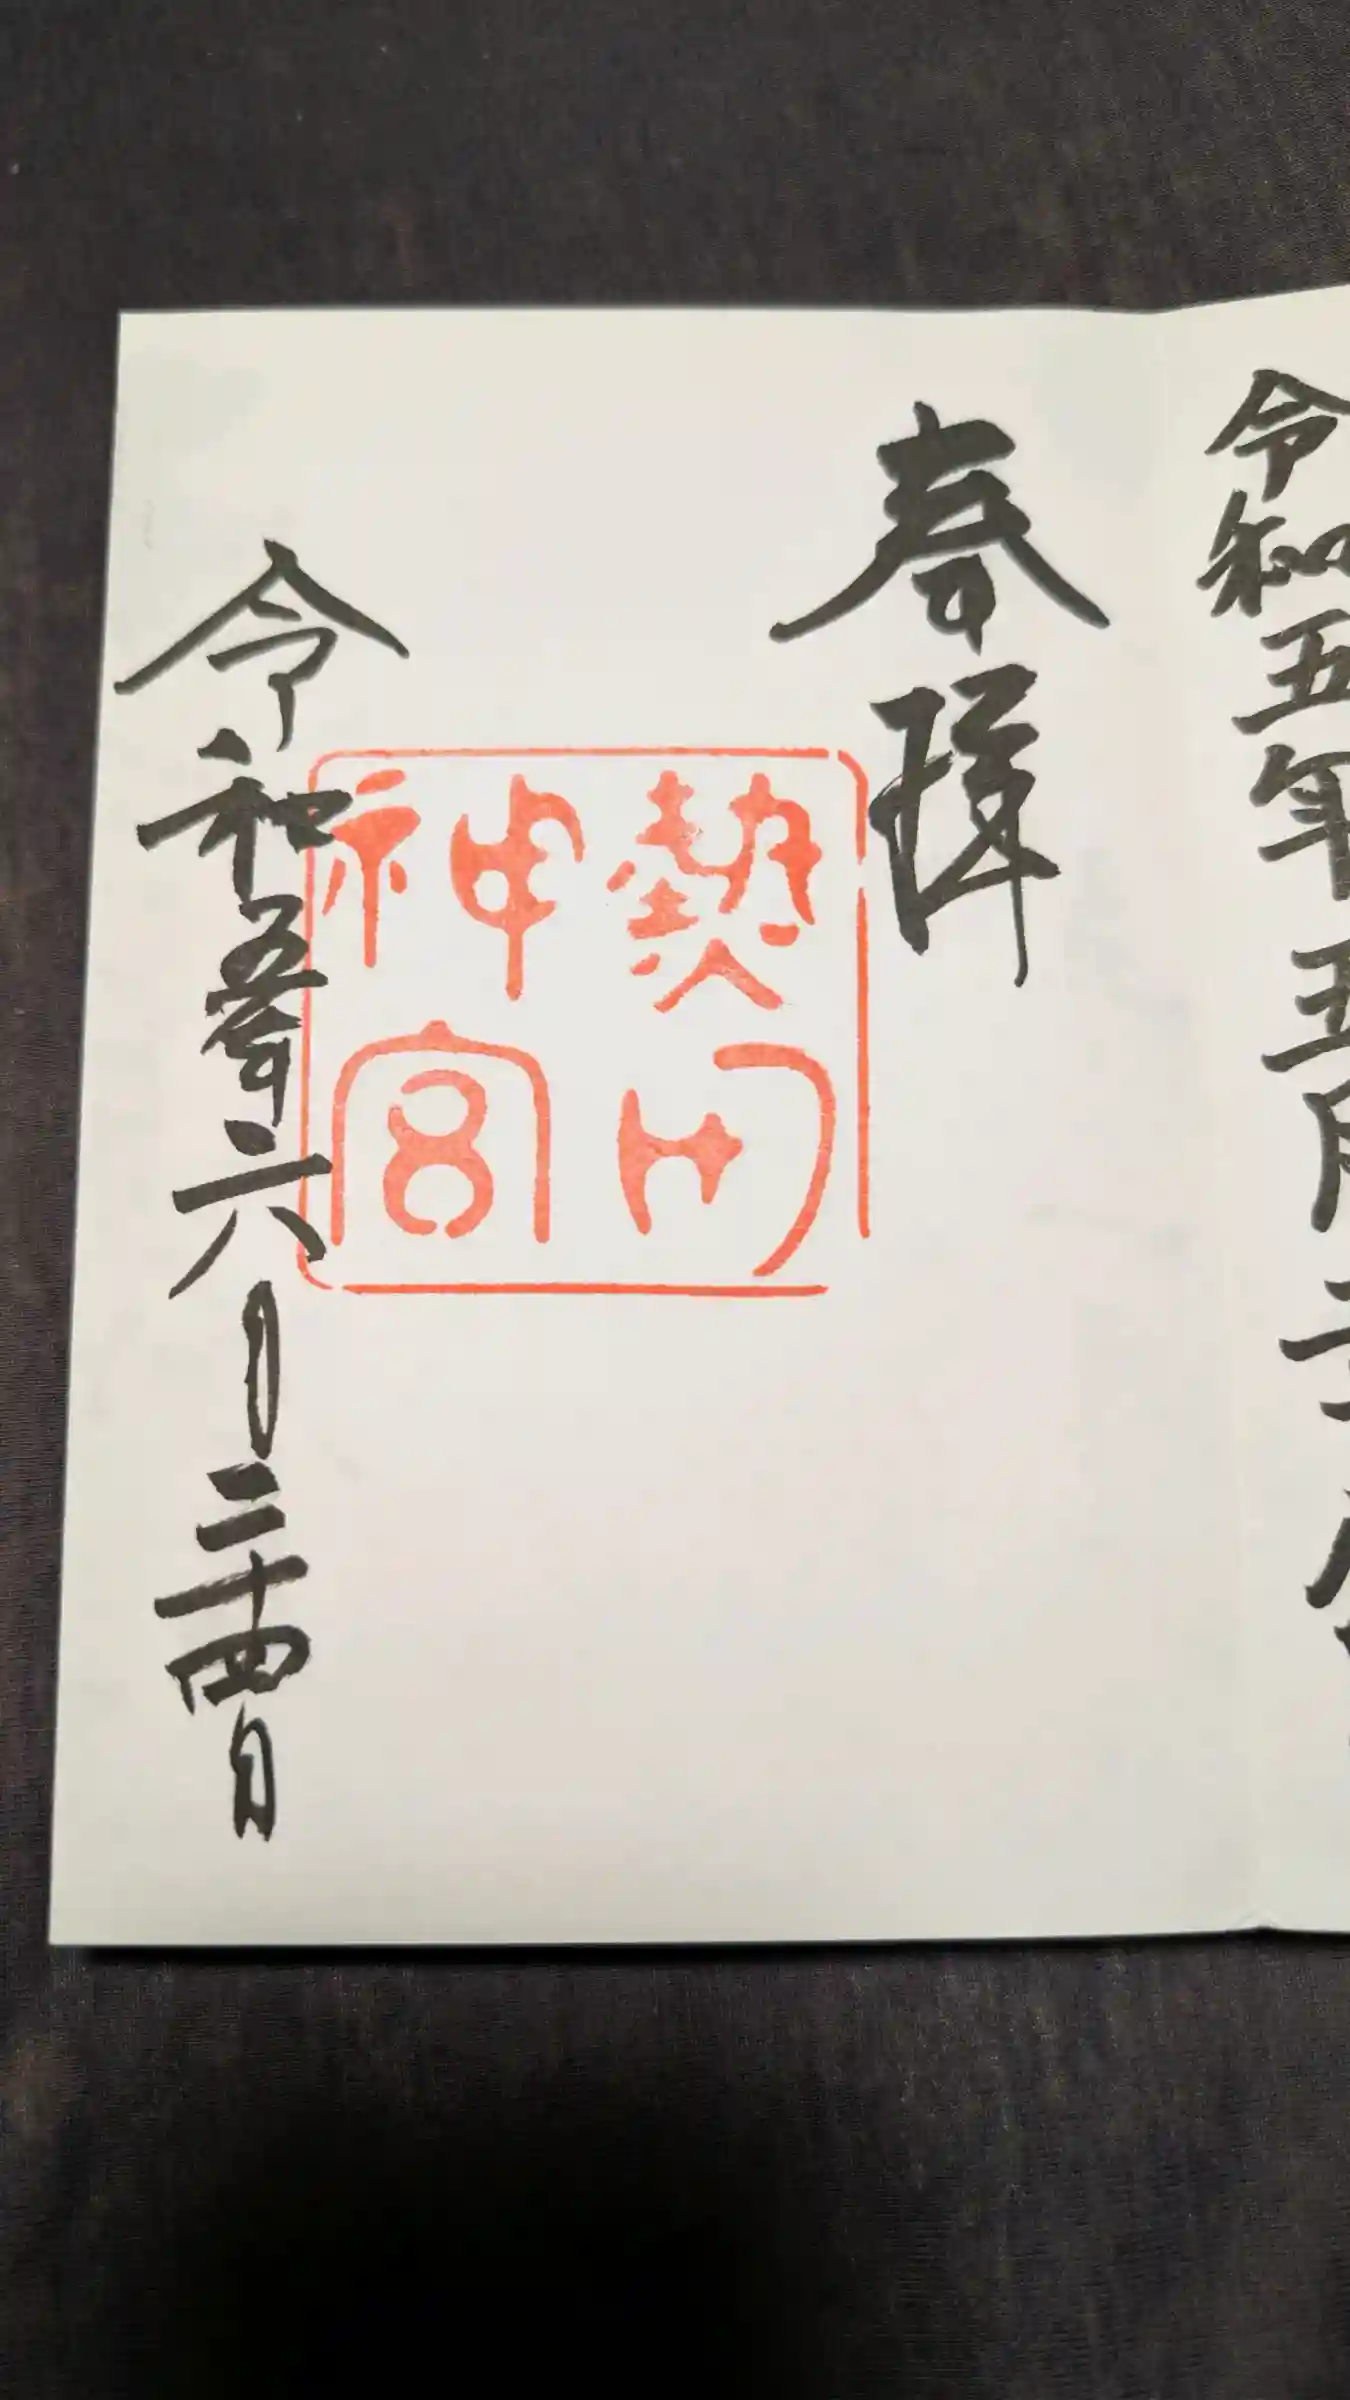 令和五年五月二十
奉拝
熱田
神宮
令和五年六月二十四日